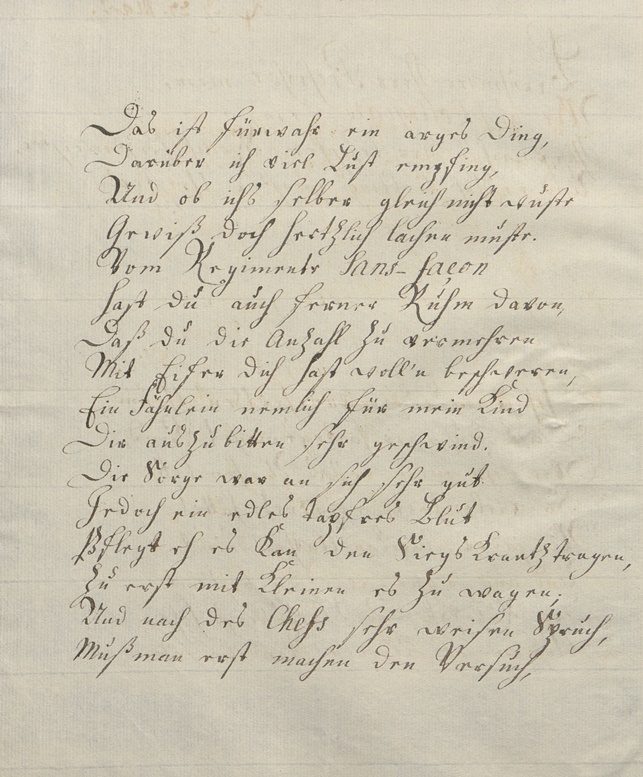 Das ist fürwahr ein arges Ding,
Darüber ich viel Lust empfing,
Und ob ichs selber gleich nicht wuste
Gewiß doch hertzlich lachen muste.
Vom Regimente Sans-façon
hast du auch ferner Ruhm davon,
Daß du die Anzahl zu vermehren
Mit Eifer dich hast woll'n beschweren,
Ein Fähnlein nemlich für mein Kind
Dir auszubitten sehr geschwind.
Die Sorge war an sich sehr gut
Jedoch ein edles tapfres Blut
Pflegt eh es Kan den Siegs Krantz tragen,
Zu erst mit Kleinen es zu wagen,
Und nach des Chefs sehr weisen Spruch,
Muß man erst machen den Versuch,